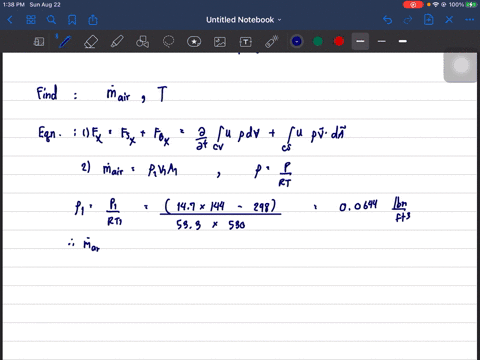 1:38 PM Sun Aug 22
100%
Untitled Notebook
Find : ṁair , T
Eqn. : 1) Fx = Fsx + FBx = ∂/∂t ∫cv u ρ dV + ∫cs u ρ v⃗ · dA⃗
2) ṁair = ρ1 V1 A1 , ρ = P/RT
ρ1 = P1/RT1 = (14.7 x 144 - 298)/53.3 x 530 = 0.0644 lbm/ft3
∴ ṁar